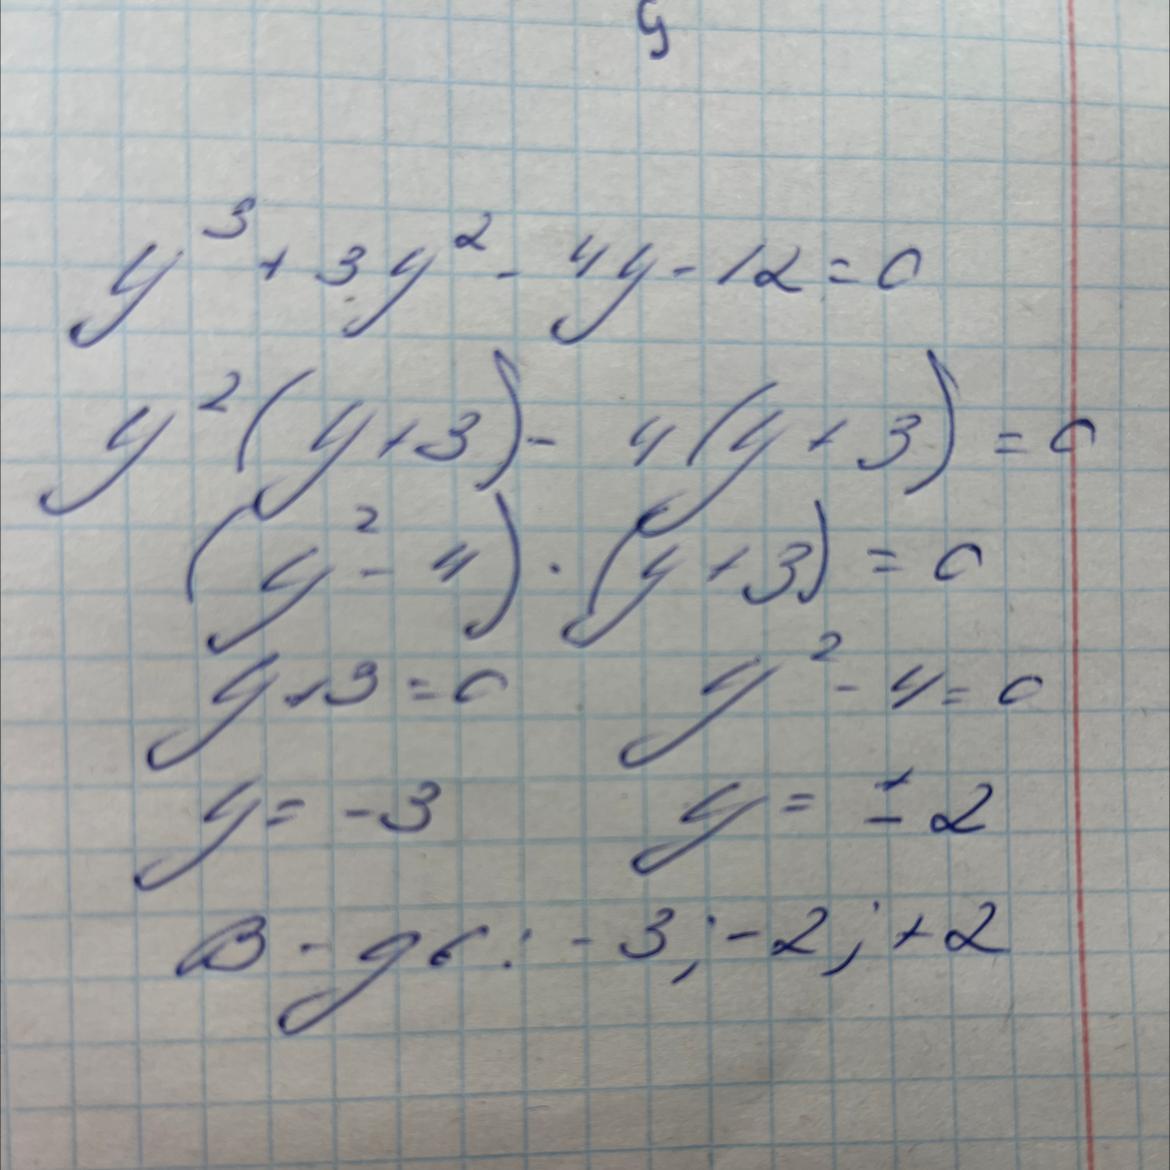 y³ + 3y² - 4y - 12 = 0
y²(y + 3) - 4(y + 3) = 0
(y² - 4) · (y + 3) = 0
y + 3 = 0 y² - 4 = 0
y = -3 y = ± 2
В-дь: -3; -2; +2